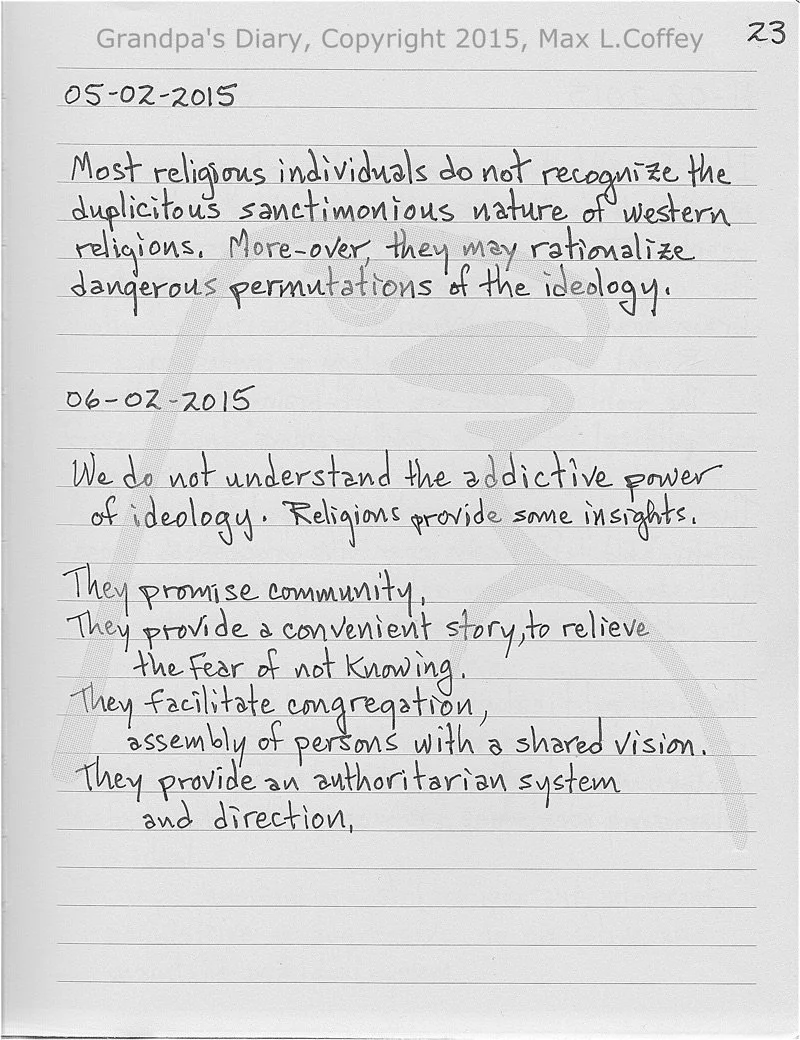 Grandpa's Diary, Copyright 2015, Max L.Coffey
23
05-02-2015
Most religious individuals do not recognize the
duplicitous sanctimonious nature of western
religions. More-over, they may rationalize
dangerous permutations of the ideology.
06-02-2015
We do not understand the addictive power
of ideology. Religions provide some insights.
They promise community,
They provide a convenient story, to relieve
the Fear of not Knowing.
They facilitate congregation,
assembly of persons with a shared vision.
They provide an authoritarian system
and direction,